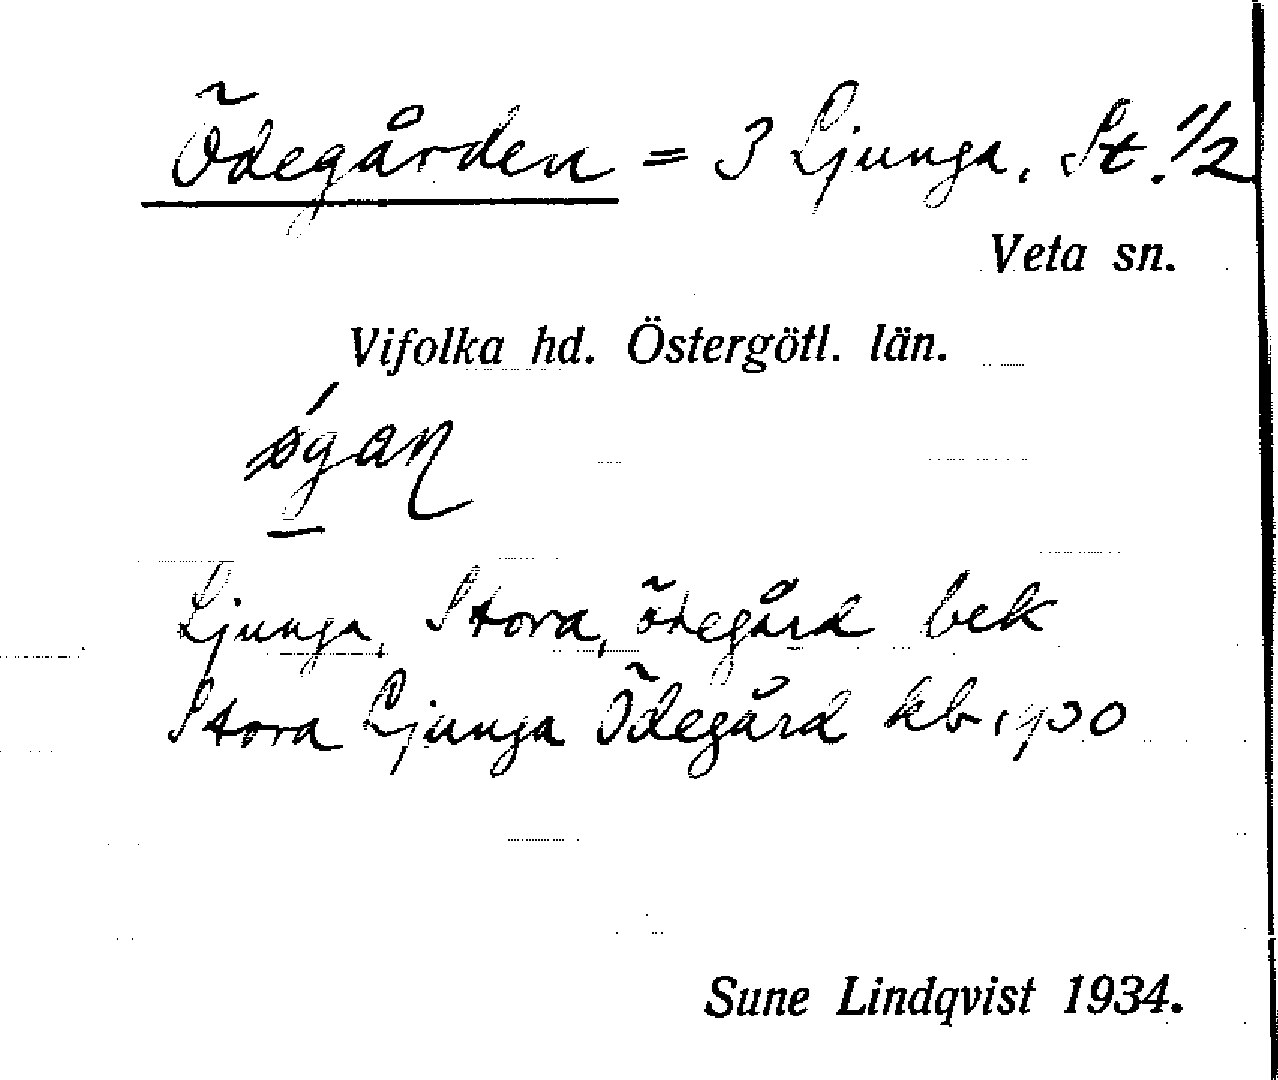 Ödegården = 3 Ljunga, St. 1/2
Veta sn.
Vifolka hd. Östergötl. län.
Ljunga, Stora, ödegård bek
Stora Ljunga Ödegård kb 1900
Sune Lindqvist 1934.